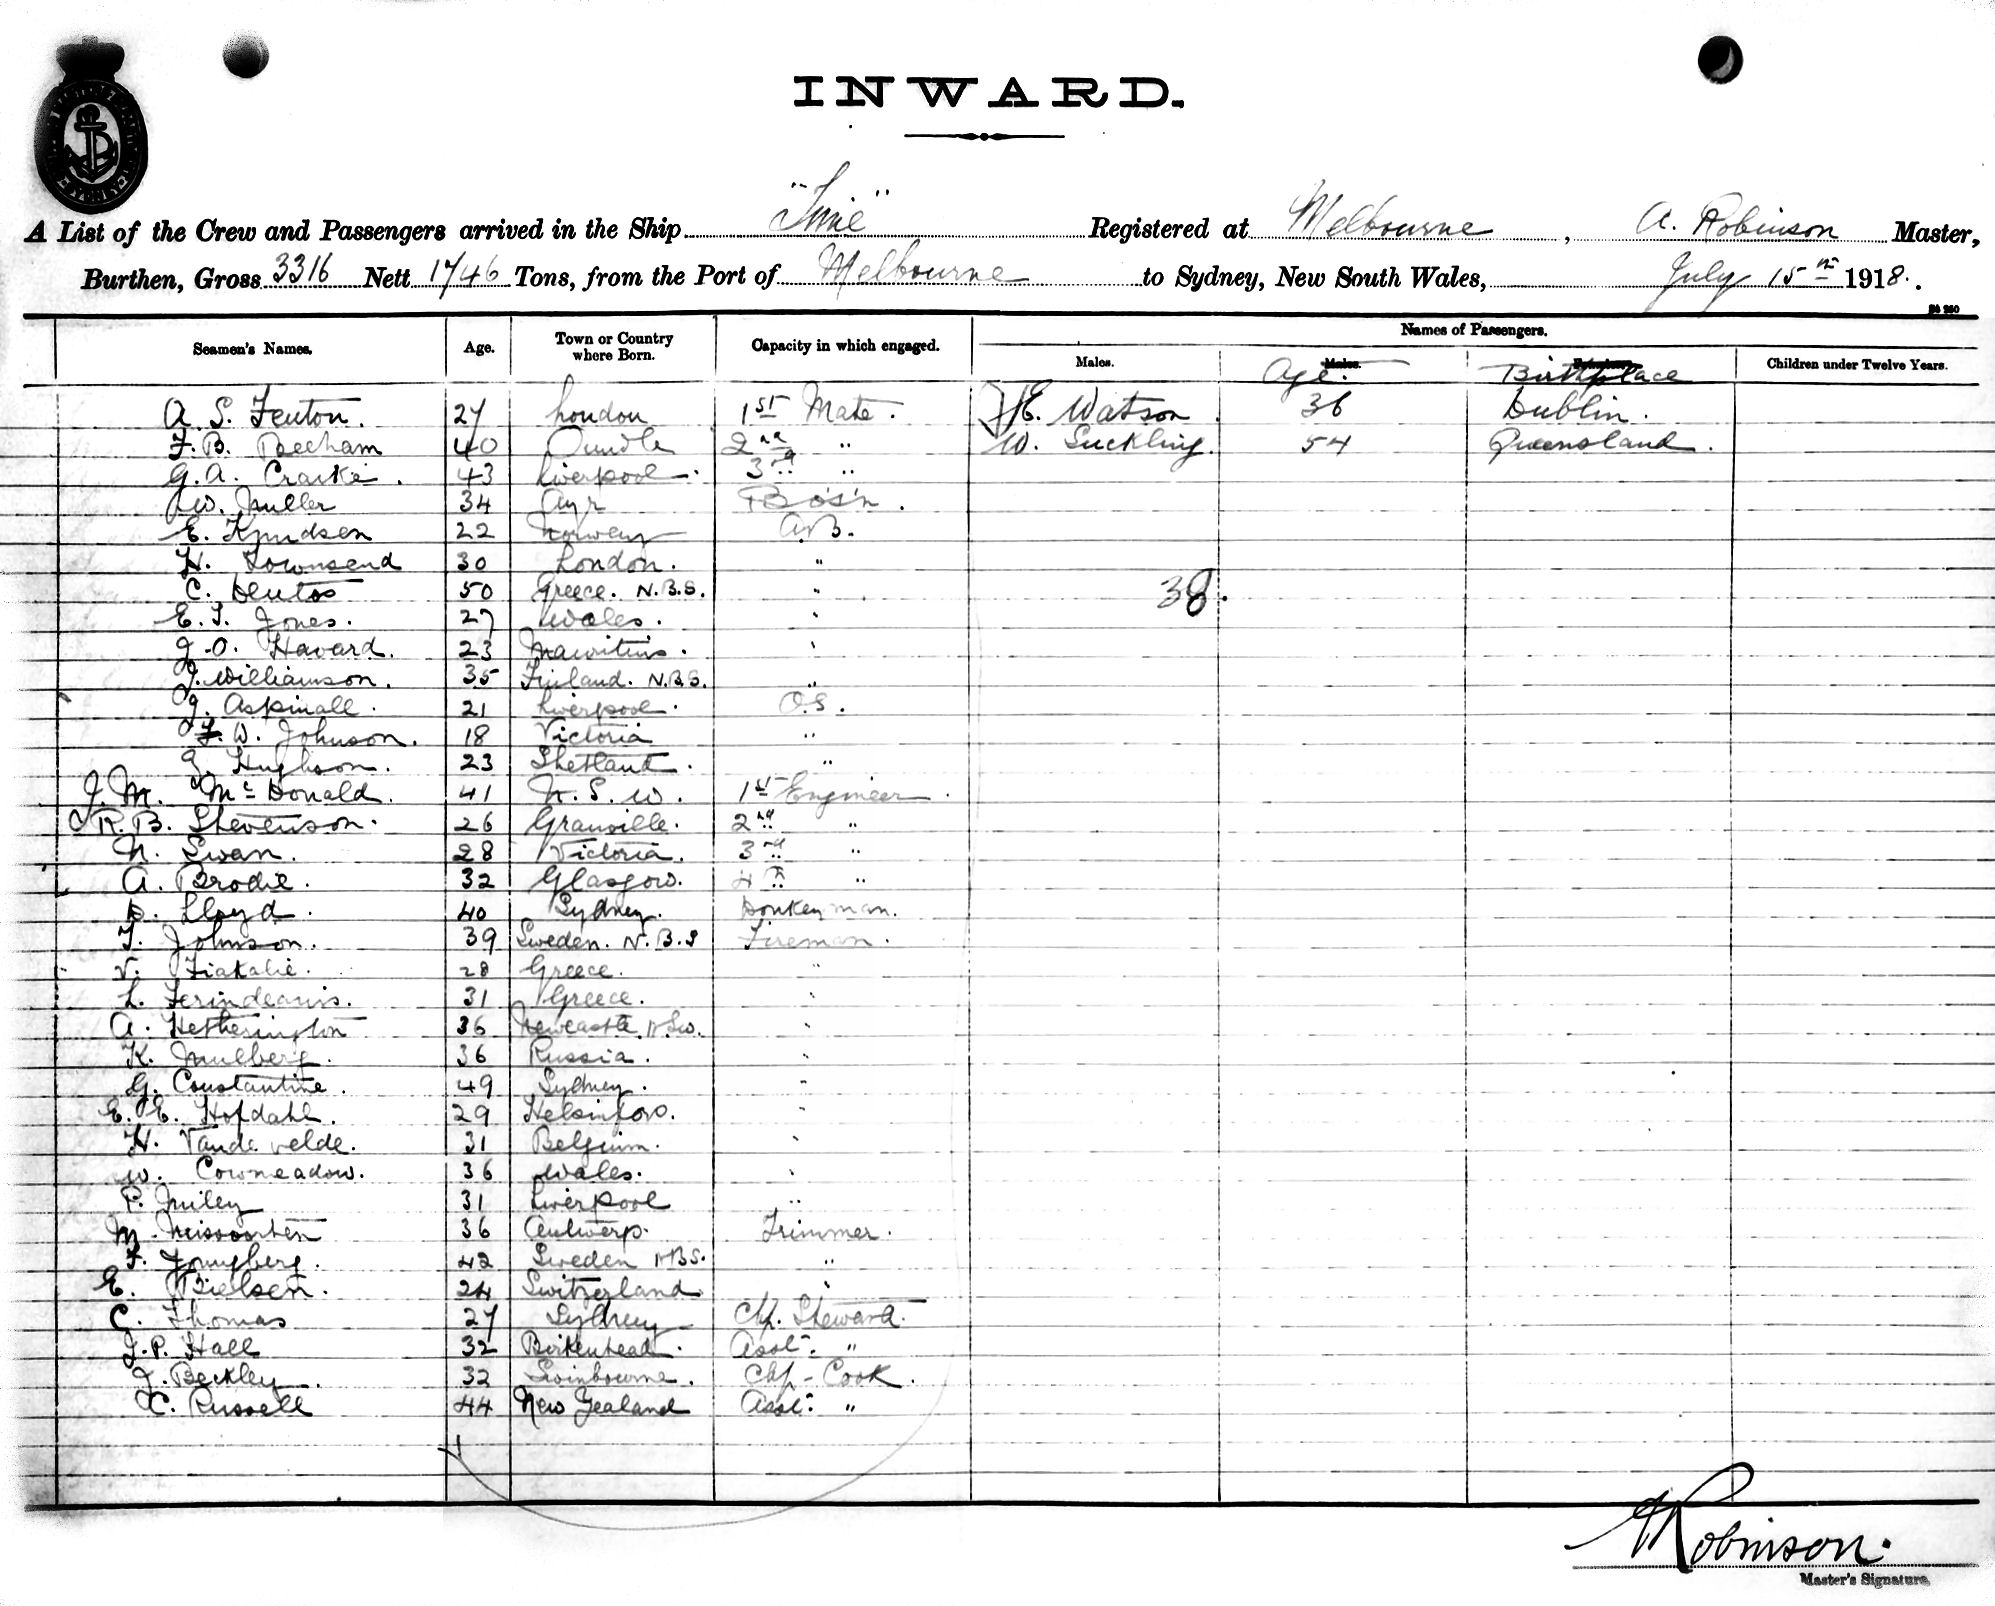 INWARD.
A List of the Crew and Passengers arrived in the Ship "Time" Registered at Melbourne, A. Robinson Master,
Burthen, Gross 3316 Nett 1746 Tons, from the Port of Melbourne to Sydney, New South Wales, July 15th 1918.
Names of Passengers.
Seamen's Names. Age. Town or Country where Born. Capacity in which engaged. Males. Age. Birthplace Children under Twelve Years.
A. S. Fenton. 27 London 1st Mate. H.E. Watson 36 Dublin.
F. B. Beecham 40 Oundle 2nd " W. Suckling. 54 Queensland.
G. A. Craike. 43 Liverpool. 3rd "
W. Muller 34 Ayr Bos'n.
E. Knudsen 22 Norway A.B.
H. Townsend 30 London. "
C. Deutos 50 Greece. N.B.S. " 38.
E. T. Jones. 27 Wales. "
J. O. Havard. 23 Mauritius. "
J. Williamson. 35 Finland. N.B.S. "
J. Aspinall. 21 Liverpool. O.S.
F. W. Johnson. 18 Victoria "
J. Hughson. 23 Shetland. "
J. M. McDonald. 41 N. S. W. 1st Engineer.
R. B. Stevenson. 26 Granville. 2nd "
N. Swan. 28 Victoria. 3rd "
A. Brodie. 32 Glasgow. 4th "
D. Lloyd. 40 Sydney. Donkeyman.
T. Johnson. 39 Sweden. N.B.S Fireman.
V. 28 Greece. "
L. 31 Greece. "
A. Hetherington 36 Newcastle N.S.W. "
K. Mulberg. 36 Russia. "
G. Constantine. 49 Sydney. "
E. E. Hofdahl. 29 Helsinfors. "
H. Vande velde. 31 Belgium. "
W. Cowmeadow. 36 Wales. "
P. Miley 31 Liverpool "
M. 36 Antwerp. Trimmer.
F. Youngberg. 42 Sweden N.B.S. "
E. Bielsen. 24 Switzerland "
C. Thomas 27 Sydney Chf. Steward.
J. P. Hall 32 Birkenhead. Asst. "
J. Beckley. 32 Swinbourne. Chf - Cook.
C. Russell 44 New Zealand Asst. "
A Robinson.
Master's Signature.